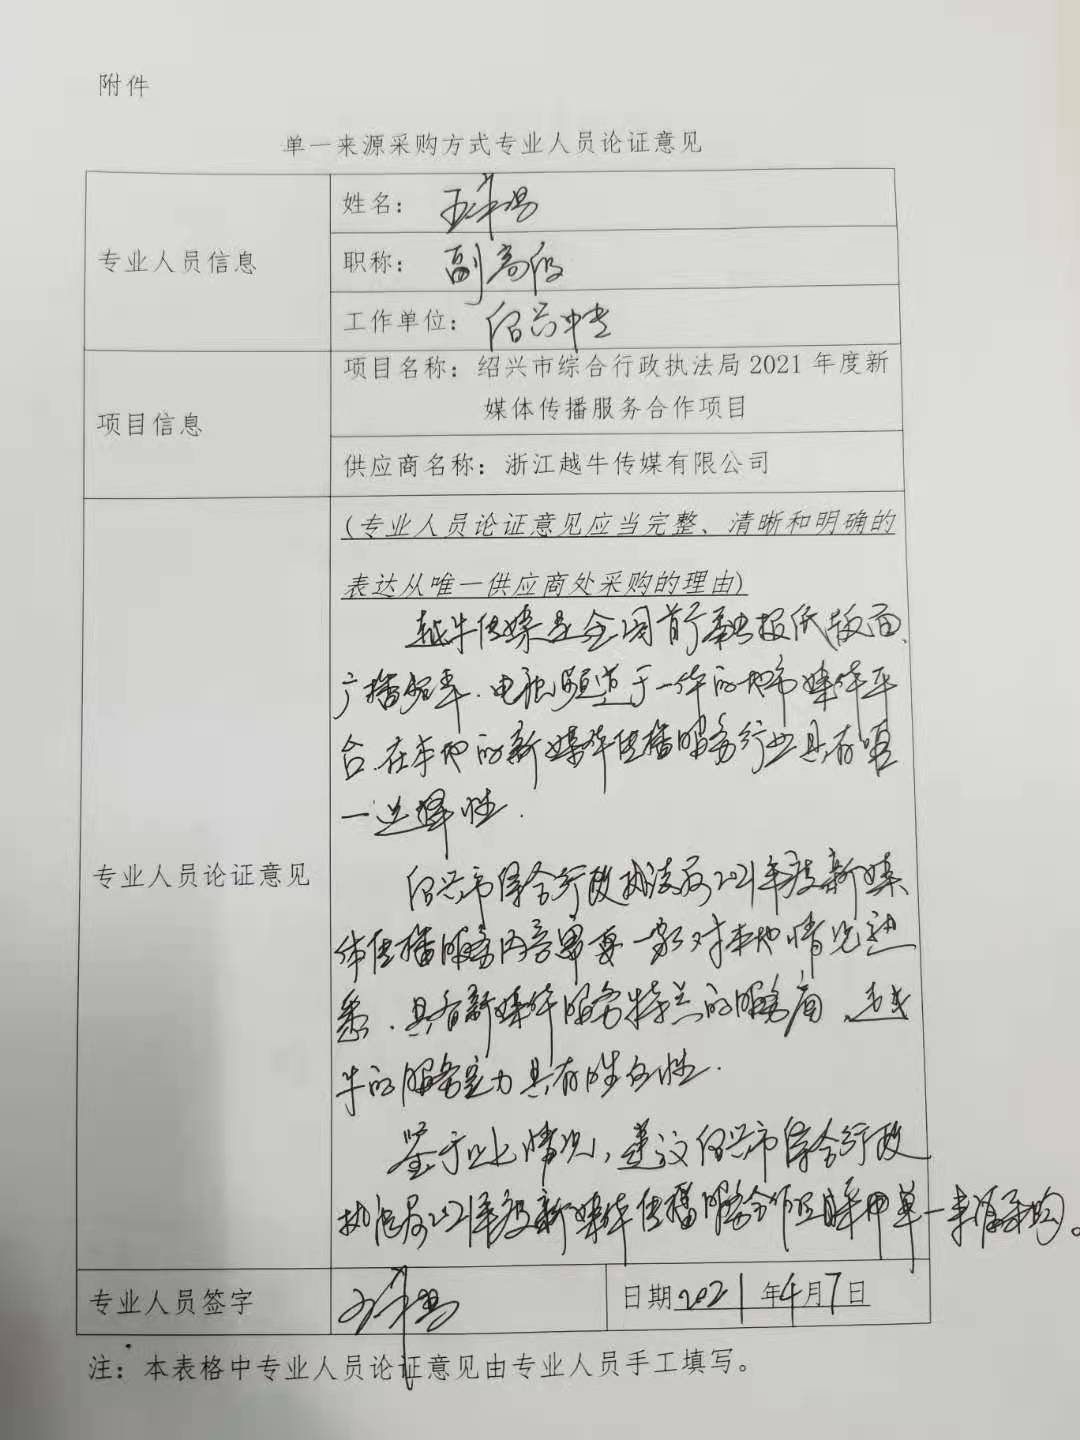 附件
单一来源采购方式专业人员论证意见
专业人员信息
姓名：
职称：副高级
工作单位：绍兴中专
项目信息
项目名称：绍兴市综合行政执法局 2021 年度新
媒体传播服务合作项目
供应商名称：浙江越牛传媒有限公司
专业人员论证意见
(专业人员论证意见应当完整、清晰和明确的
表达从唯一供应商处采购的理由)
越牛传媒是全国首个融报纸版面、
广播频率、电视频道于一体的地市媒体平
台，在本地的新媒体传播服务行业具有唯
一选择性．
绍兴市综合行政执法局2021年度新媒
体传播服务内容需要一家对本地情况熟
悉、具有新媒体服务特点的服务商，越
牛的服务能力具有唯一性．
鉴于以上情况，建议绍兴市综合行政
执法局2021年度新媒体传播服务合作项目采用单一来源采购。
专业人员签字
日期 2021 年 4 月 7 日
注：本表格中专业人员论证意见由专业人员手工填写。